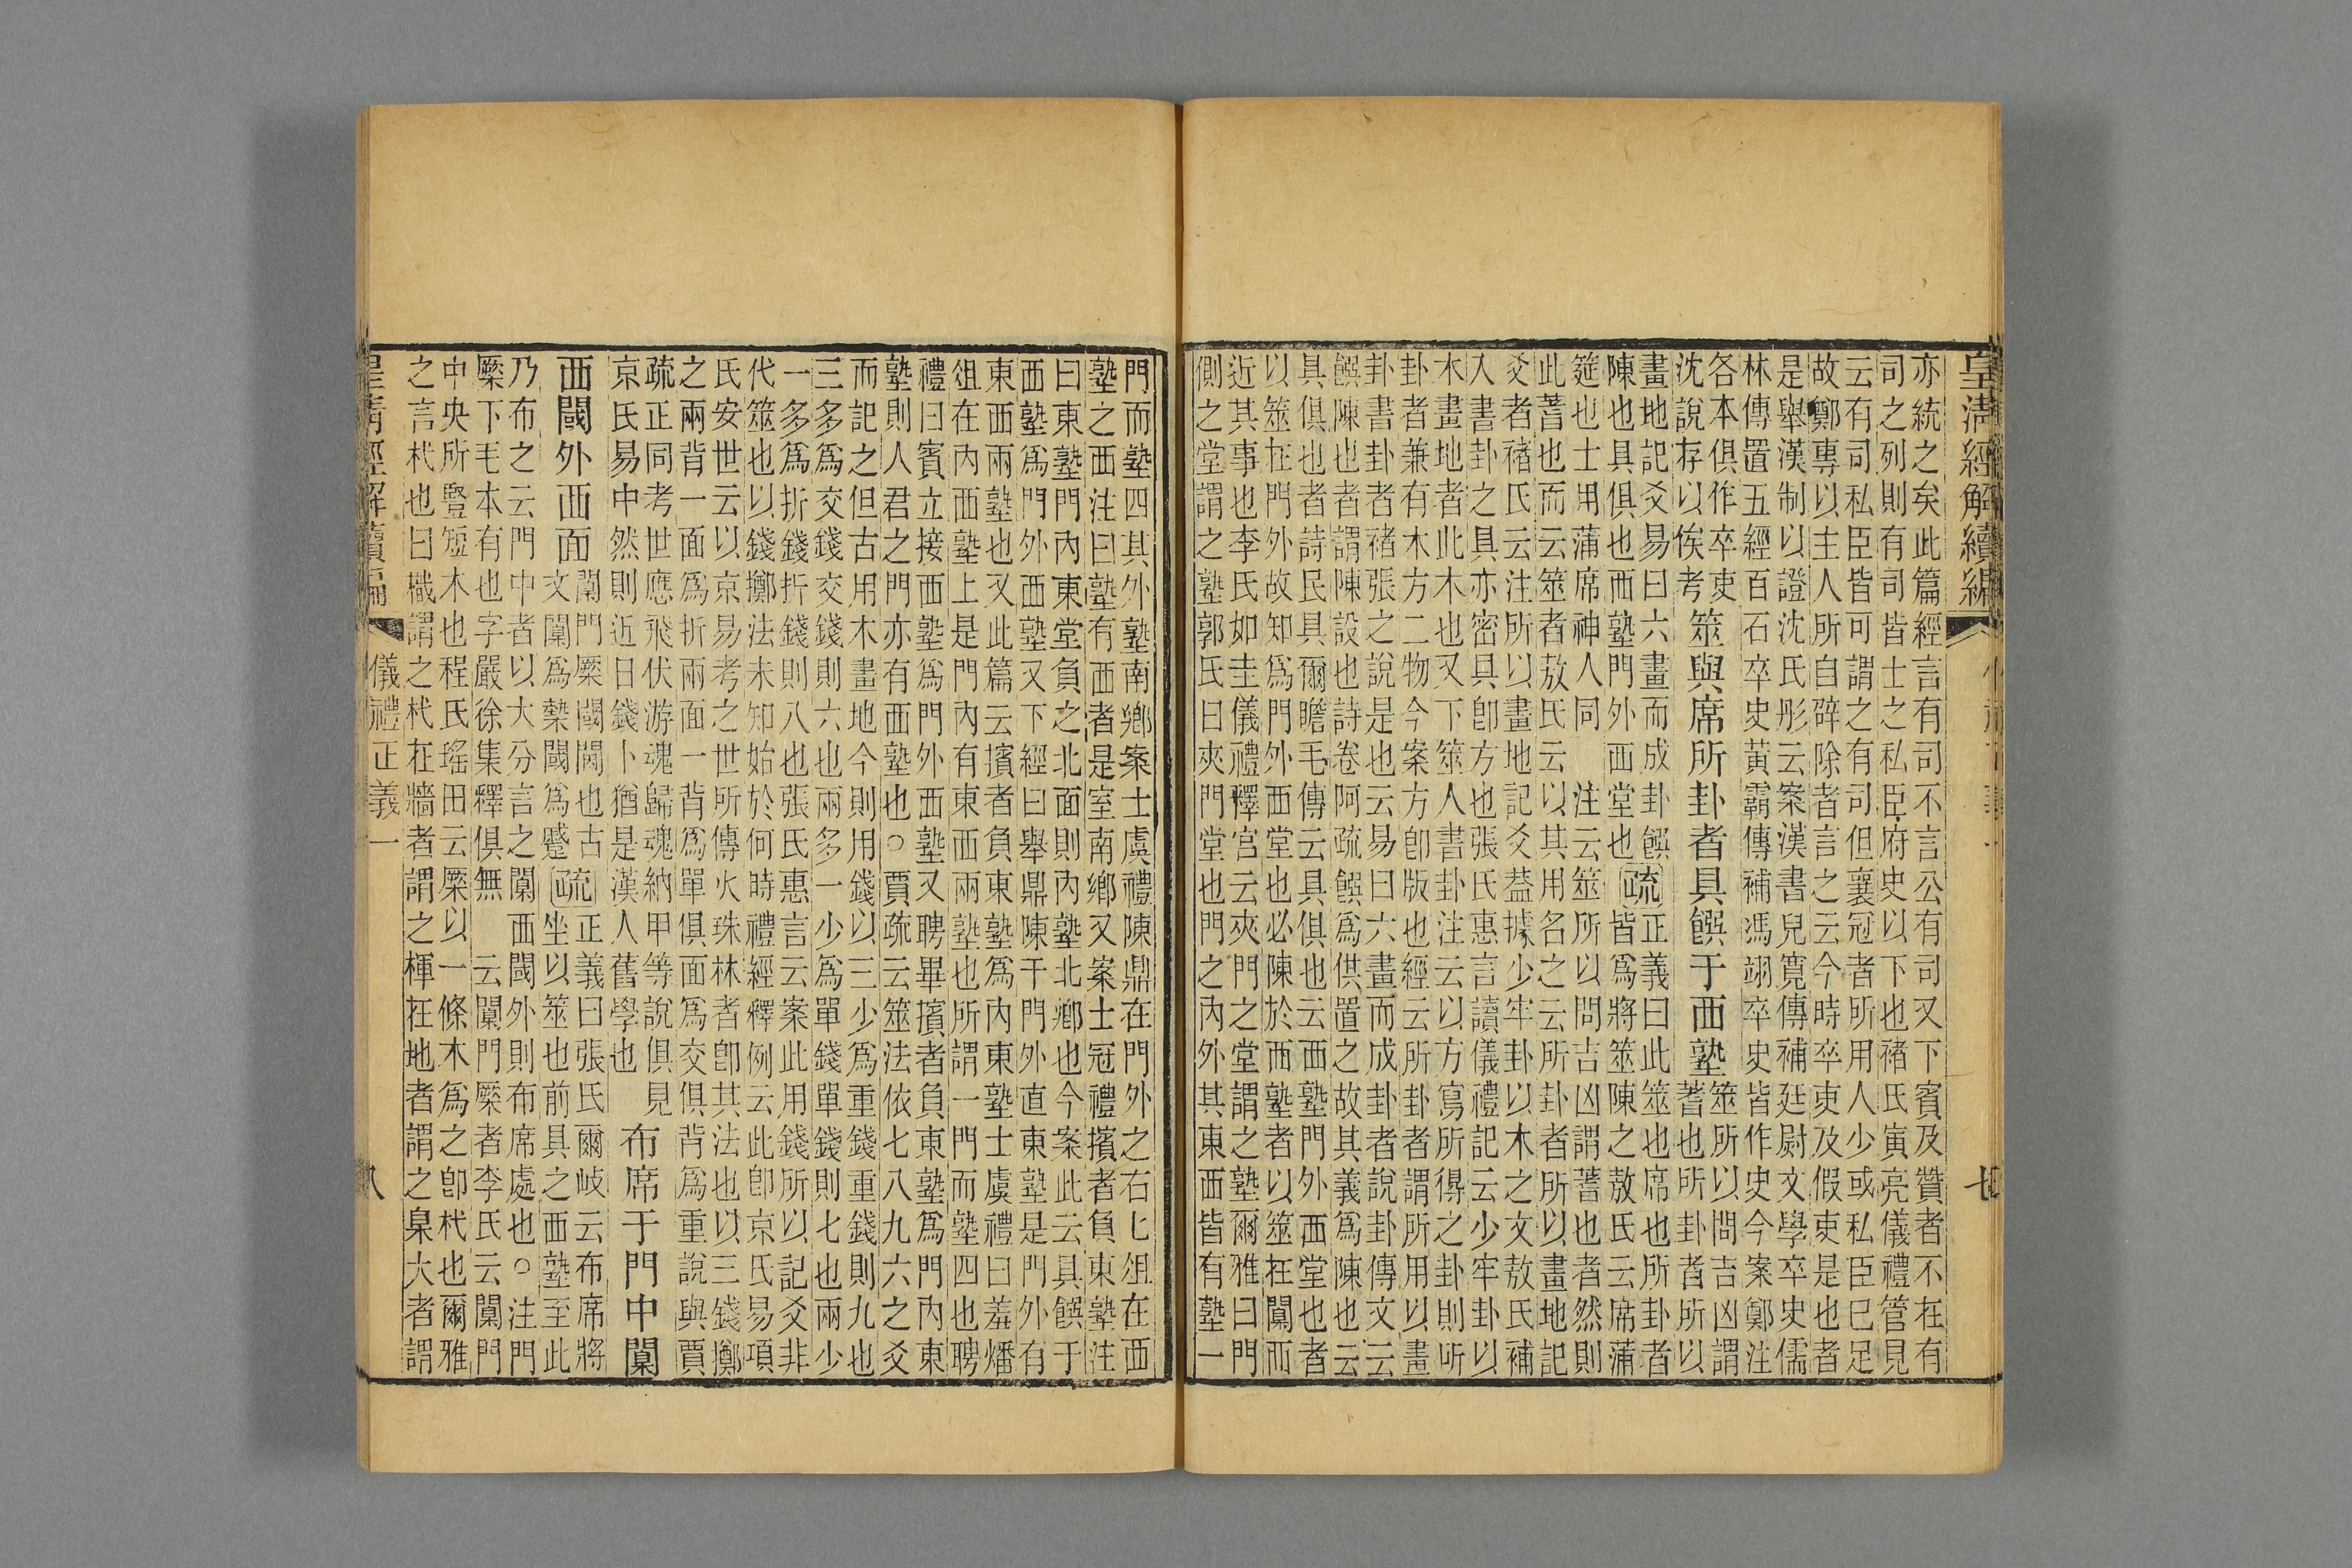 皇清經解續編
七
亦統之矣此篇經言有司不言公有司又下賓及贊者不在有
司之列則有司皆士之私臣府史以下也褚氏寅亮儀禮管見
云有司私臣皆可謂之有司但襄冠者所用人少或私臣巳足
故鄭專以主人所自辟除者言之云今時卒吏及假吏是也者
是舉漢制以證沈氏彤云案漢書兒寬傳補廷尉文學卒史儒
林傳置五經百石卒史黃霸傳補馮翊卒史皆作史今案鄭注
各本俱作卒吏
沈說存以俟考
筮與席所卦者具饌于西塾
筮所以問吉凶謂
蓍也所卦者所以
畫地記爻易曰六畫而成卦饌
陳也具俱也西塾門外西堂也
疏
正義曰此筮也席也所卦者
皆爲將筮陳之敖氏云席蒲
筵也士用蒲席神人同 注云筮所以問吉凶謂蓍也者然則
此蓍也而云筮者敖氏云以其用名之云所卦者所以畫地記
爻者褚氏云注所以畫地記爻葢據少牢卦以木之文敖氏補
入書卦之具亦密具卽方也張氏惠言讀儀禮記云少牢卦以
木畫地者此木也又下筮人書卦注云以方寫所得之卦則所
卦者兼有木方二物今案方卽版也經云所卦者謂所用以畫
卦書卦者褚張之說是也云易曰六畫而成卦者說卦傳文云
饌陳也者謂陳設也詩卷阿疏饌爲供置之故其義爲陳也云
具俱也者詩民具爾瞻毛傳云具俱也云西塾門外西堂也者
以筮在門外故知爲門外西堂也必陳於西塾者以筮在闑而
近其事也李氏如圭儀禮釋宮云夾門之堂謂之塾爾雅曰門
側之堂謂之塾郭氏曰夾門堂也門之內外其東西皆有塾一
門而塾四其外塾南鄉案士虞禮陳鼎在門外之右匕俎在西
塾之西注曰塾有西者是室南鄉又案士冠禮擯者負東塾注
曰東塾門內東堂負之北面則內塾北鄉也今案此云具饌于
西塾爲門外西塾又下經曰舉鼎陳于門外直東塾是門外有
東西兩塾也又此篇云擯者負東塾爲內東塾士虞禮曰羞燔
俎在內西塾上是門內有東西兩塾也所謂一門而塾四也聘
禮曰賓立接西塾爲門外西塾又聘畢擯者負東塾爲門內東
塾則人君之門亦有西塾也○賈疏云筮法依七八九六之爻
而記之但古用木畫地今則用錢以三少爲重錢重錢則九也
三多爲交錢交錢則六也兩多一少爲單錢單錢則七也兩少
一多爲折錢折錢則八也張氏惠言云案此用錢所以記爻非
代筮也以錢擲法未知始於何時禮經釋例云此卽京氏易項
氏安世云以京易考之世所傳火珠林者卽其法也以三錢擲
之兩背一面爲折兩面一背爲單俱面爲交俱背爲重說與賈
疏正同考世應飛伏游魂歸魂納甲等說俱見
京氏易中然則近日錢卜猶是漢人舊學也
布席于門中闑
西閾外西面
闑門橜閾閫也古
文闑爲槷閾爲蹙
疏
正義曰張氏爾岐云布席將
坐以筮也前具之西塾至此
乃布之云門中者以大分言之闑西閾外則布席處也○注門
橜下毛本有也字嚴徐集釋俱無 云闑門橜者李氏云闑門
中央所豎短木也程氏瑤田云橜以一條木爲之卽杙也爾雅
之言杙也曰樴謂之杙在牆者謂之楎在地者謂之臬大者謂
皇清經解續編
儀禮正義一
八